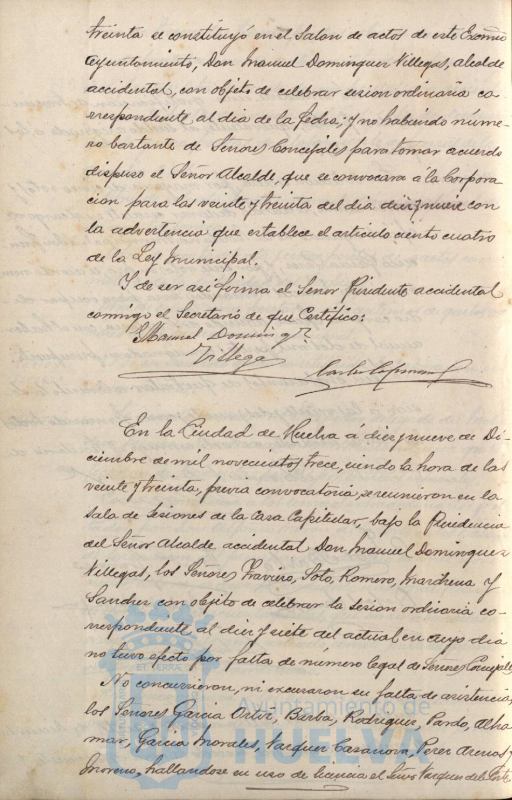 treinta se constituyó en el Salon de actos de este Excmo
Ayuntamiento, Don Manuel Dominguez Villegas, alcalde
accidental, con objeto de celebrar sesion ordinaria co-
rrespondiente al dia de la fecha; y no habiendo núme-
ro bastante de Señores Concejales para tomar acuerdo
dispuso el Señor Alcalde, que se convocara á la Corpora
cion para las veinte y treinta del dia diez y nueve con
la advertencia que establece el articulo ciento cuatro
de la Ley Municipal.
Y de ser asi firma el Señor Presidente accidental
conmigo el Secretario de que Certifico:
Manuel Doming.z
Villegas
En la Ciudad de Huelva á diez y nueve de Di-
ciembre de mil novecientos trece, siendo la hora de las
veinte y treinta, previa convocatoria, se reunieron en la
Sala de Sesiones de la Casa Capitular, bajo la Presidencia
del Señor Alcalde accidental Don Manuel Dominguez
Villegas, los Señores Traviro, Soto, Romero, Marchena y
Sanchez con objeto de celebrar la sesion ordinaria co-
rrespondiente al diez y siete del actual en cuyo dia
no tuvo efecto por falta de número legal de Señores Concejales
No concurrieron, ni excusaron su falta de asistencia,
los Señores Garcia Ortiz, Barba, Rodriguez, Pardo, Alha-
mar, Garcia Morales, Vazquez Casanova, Perez Arenas y
Moreno, hallandose en uso de licencia el Señor Vazquez de la
ET TERRÆ
Ayuntamiento de
HUELVA